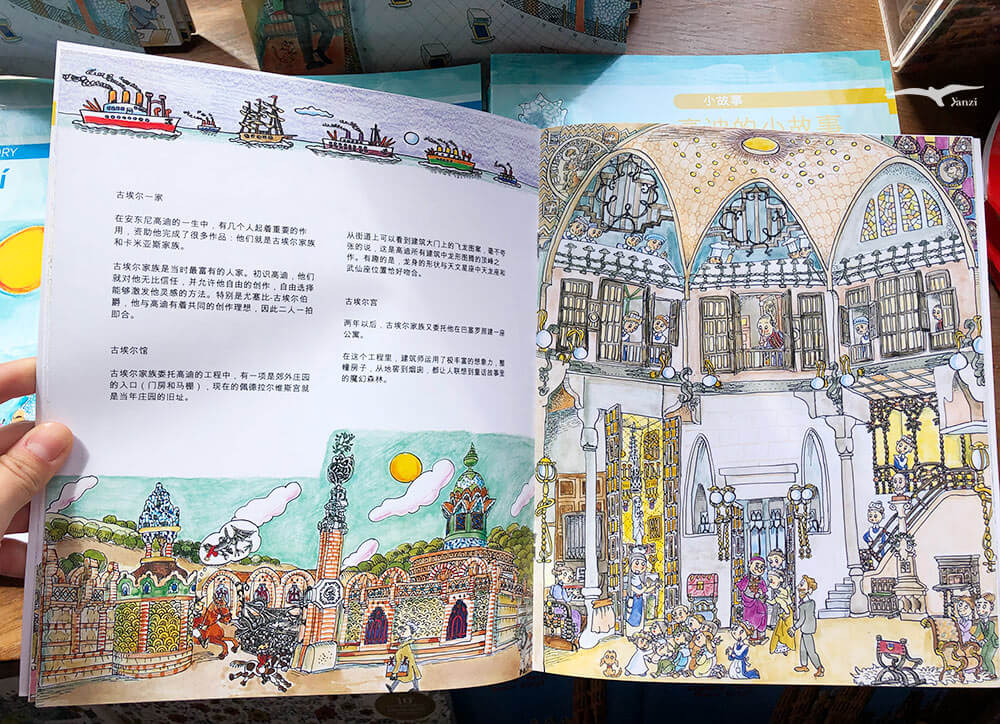 小故事
高迪的小故事
Yanzi
ORY
古埃尔一家
在安东尼高迪的一生中，有几个人起着重要的作
用，资助他完成了很多作品：他们就是古埃尔家族
和卡米亚斯家族。
古埃尔家族是当时最富有的人家。初识高迪，他们
就对他无比信任，并允许他自由的创作，自由选择
能够激发他灵感的方法。特别是尤塞比-古埃尔伯
爵，他与高迪有着共同的创作理想，因此二人一拍
即合。
古埃尔馆
古埃尔家族委托高迪的工程中，有一项是郊外庄园
的入口（门房和马棚），现在的佩德拉尔维斯宫就
是当年庄园的旧址。
从街道上可以看到建筑大门上的飞龙图案，毫不夸
张的说，这是高迪所有建筑中龙形图腾的顶峰之
作。有趣的是，龙身的形状与天文星座中天龙座和
武仙座位置恰好吻合。
古埃尔宫
两年以后，古埃尔家族又委托他在巴塞罗那建一座
公寓。
在这个工程里，建筑师运用了极丰富的想象力，整
幢房子，从地窖到烟囱，都让人联想到童话故事里
的魔幻森林。